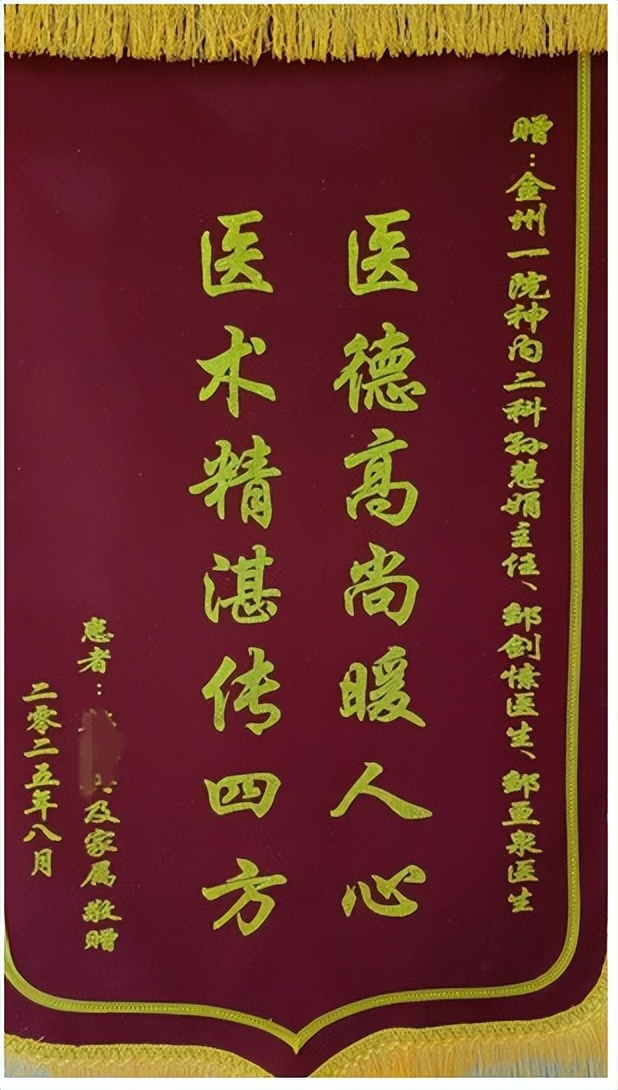 赠：金州一院神内二科孙慧娟主任、邹剑惊医生、邹亚泉医生
医德高尚暖人心
医术精湛传四方
患者：及家属敬赠
二零二五年八月